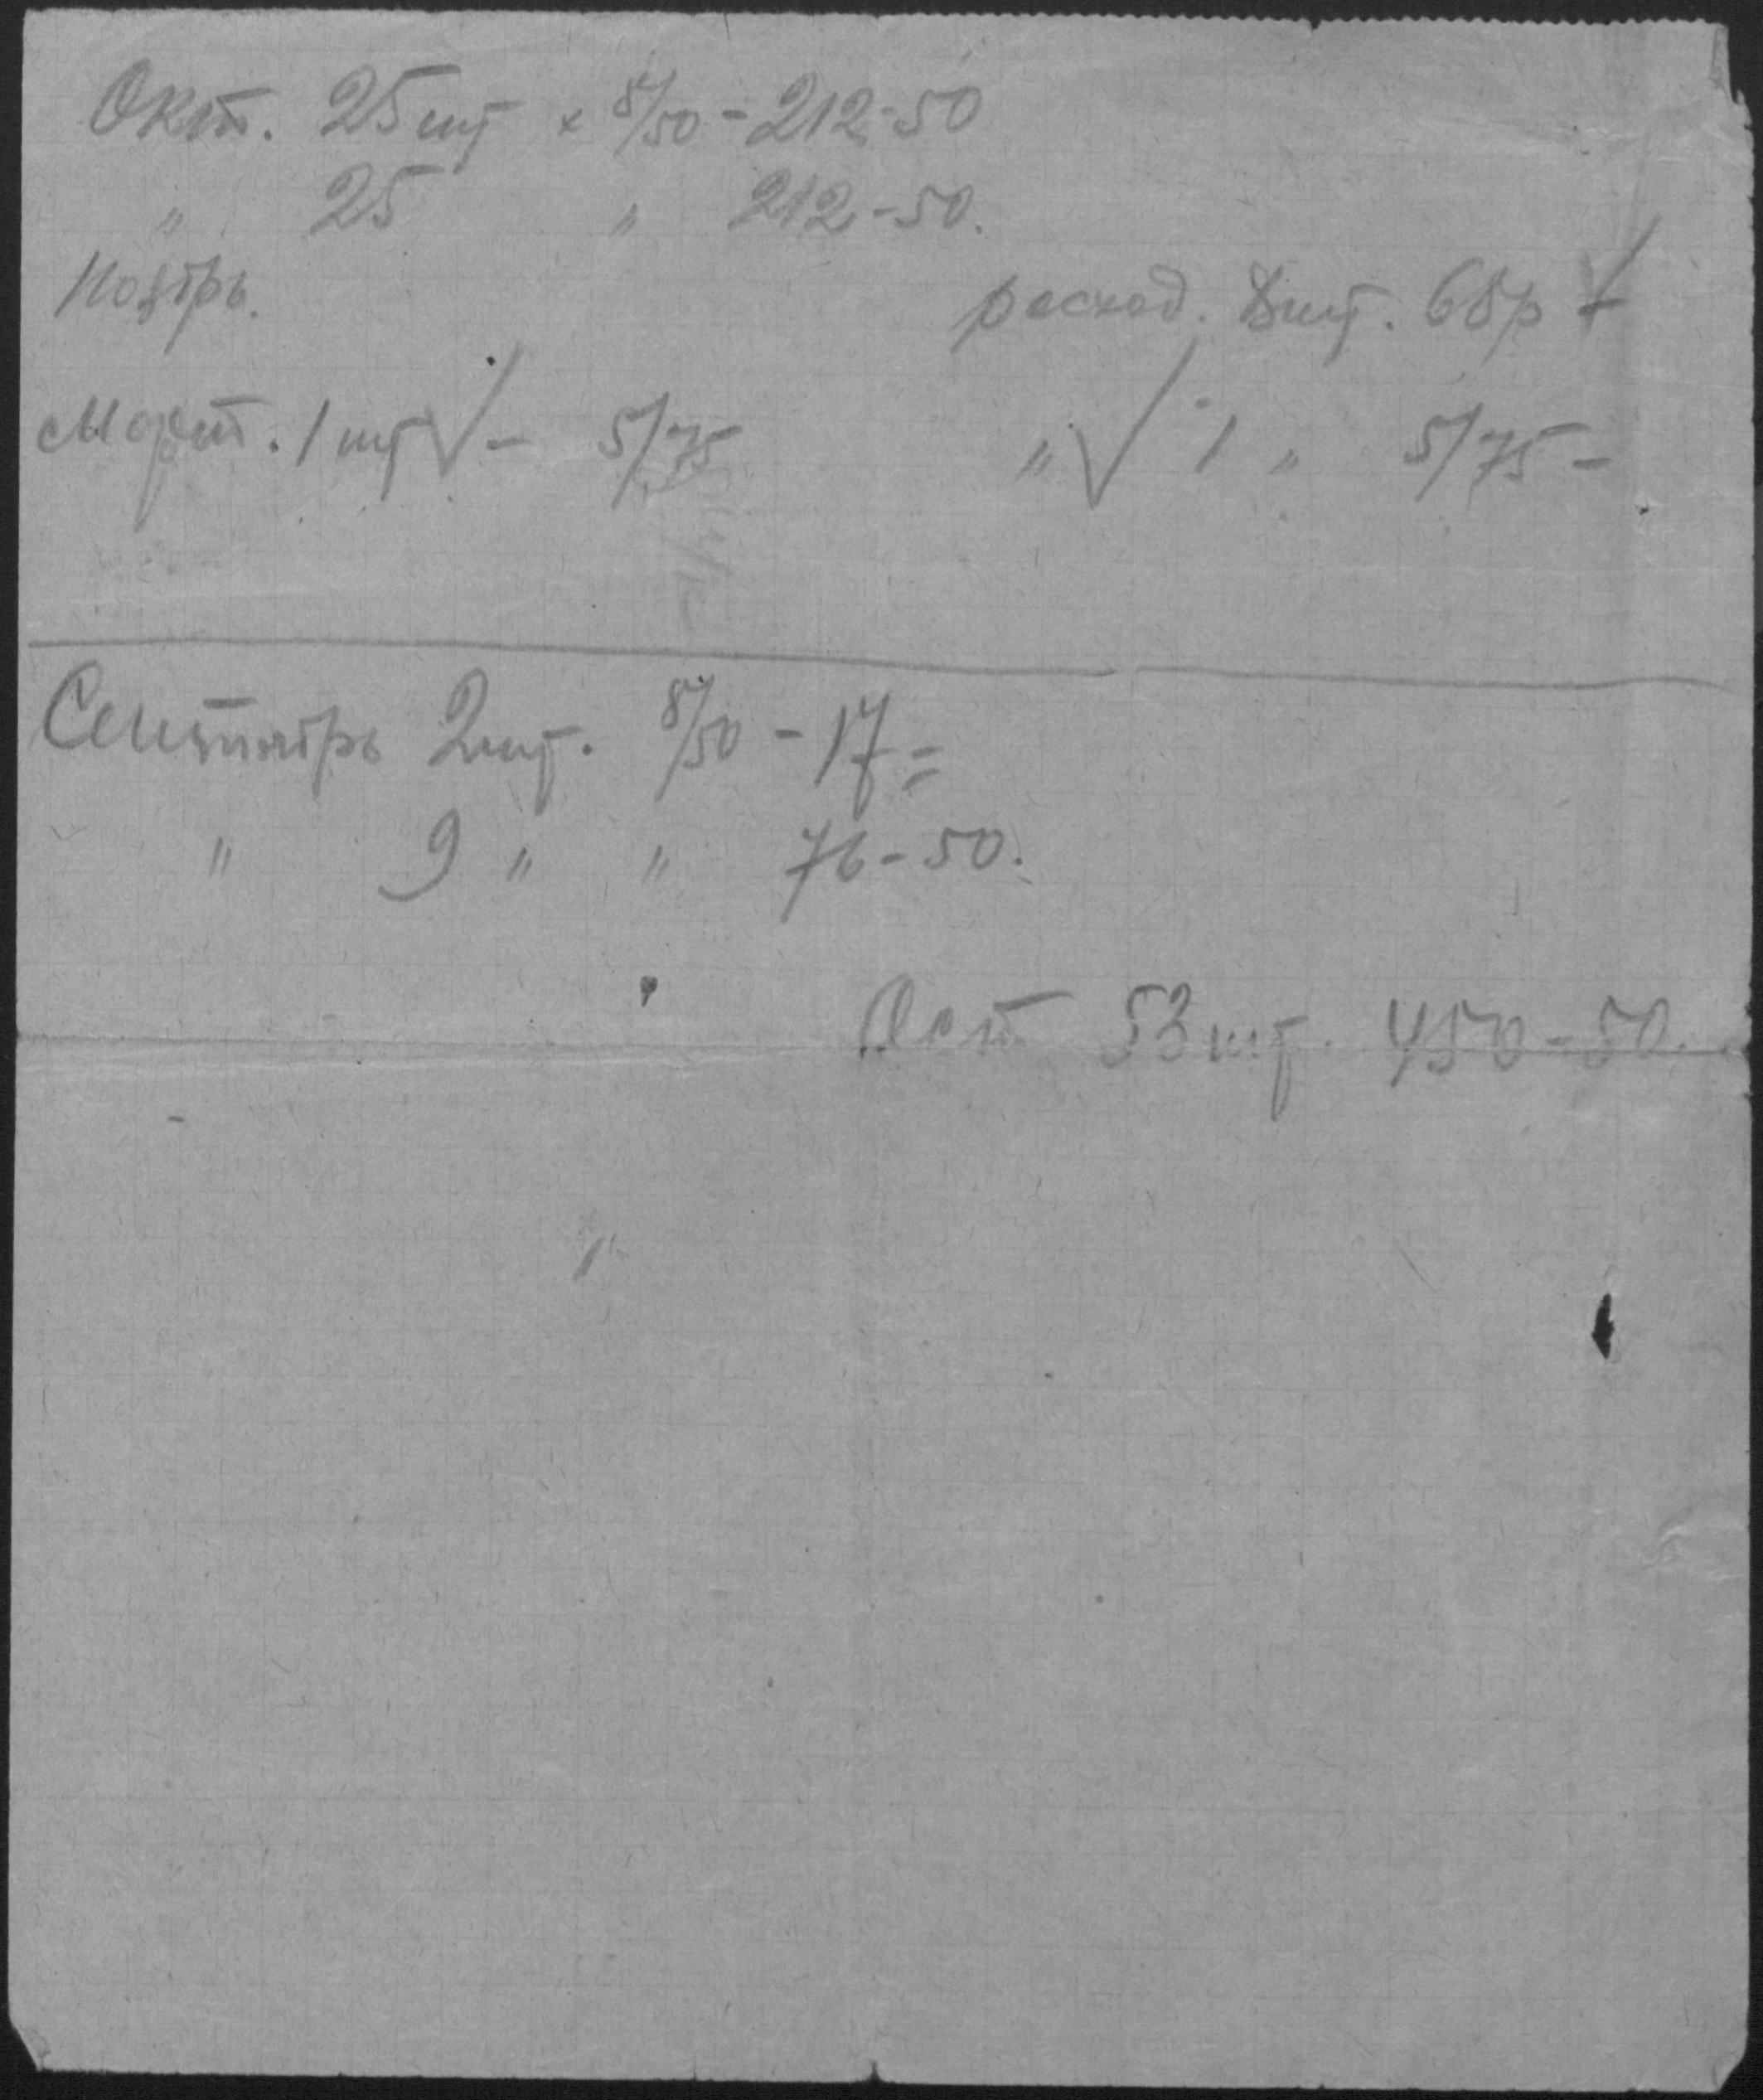 Окт. 25 шт × 8/50 - 212-50
" 25 " 212-50.
Ноябрь. расход. 8 шт. 68р ✓ -
Март. 1 шт ✓ - 5/75 " ✓ 1 " 5/75 -
Сентябрь 2 шт. 8/50 - 17 =
" 9 " " 76-50.
Ост 53 шт. 450-50.